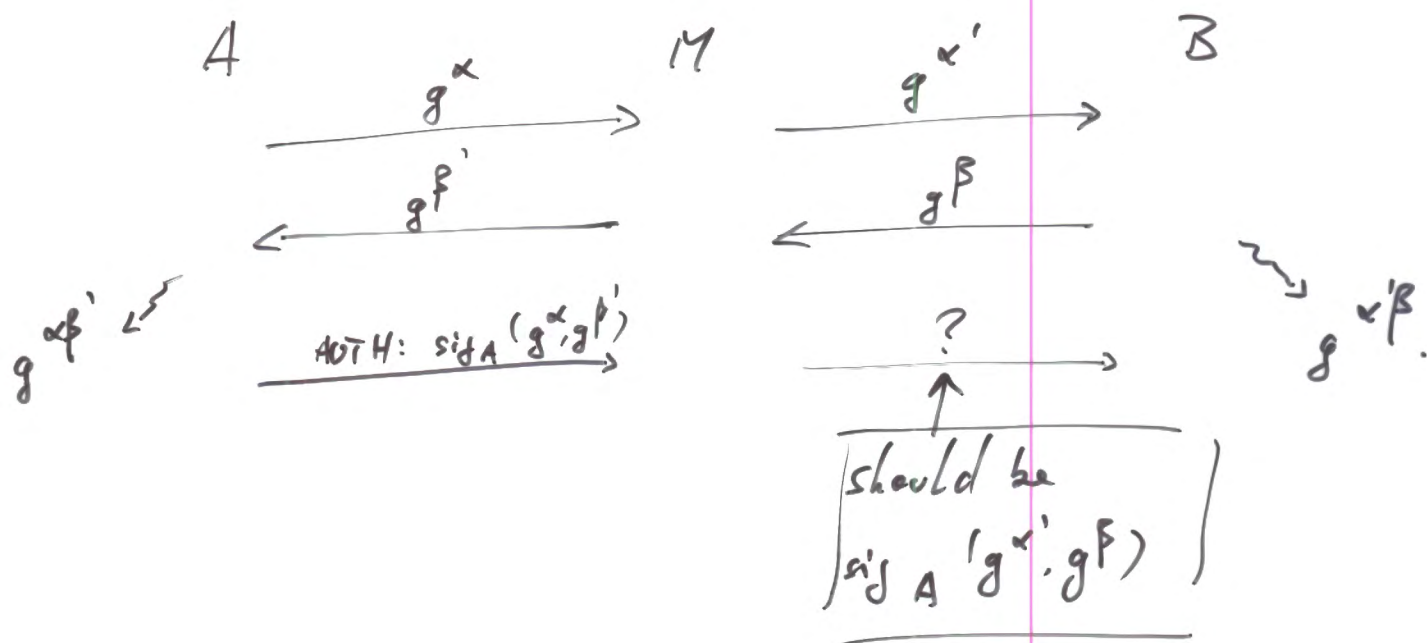 A M B
g^α g^α'
g^β' g^β
g^αβ' AUTH: sig_A (g^α, g^β') ? g^α'β.
should be
sig_A (g^α', g^β)